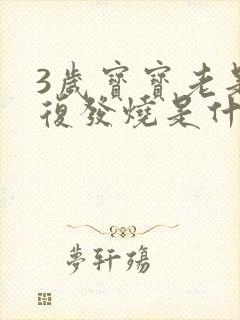 3歲寶寶老是
復發燒是什
夢軒殤